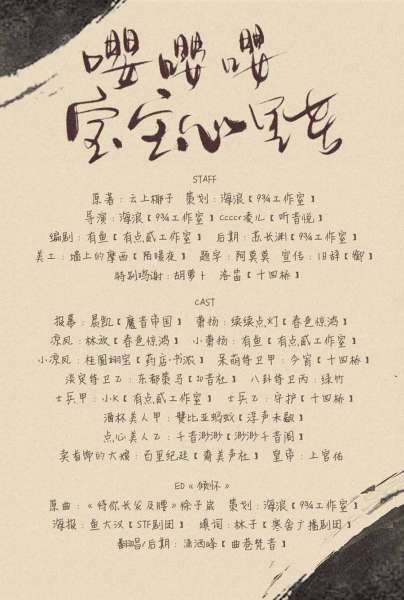 嘤嘤嘤
宝宝心里苦
STAFF
原著：云上椰子 策划：海浪【934工作室】
导演：海浪【934工作室】ccccr凌儿【听音悦】
编剧：有鱼【有点贰工作室】 后期：苏长渊【934工作室】
美工：墙上的摩西【陌曦夜】 题字：阿莫莫 宣传：旧辞【御】
特别鸣谢：胡萝卜 洛笛【十四桥】
CAST
报幕：晨凯【魔音帝国】 萧扬：续续点灯【春色惊鸿】
凉风：林放【春色惊鸿】 小萧扬：有鱼【有点贰工作室】
小凉风：柱圈翊宝【药店·书浓】 呆萌侍卫甲：今宵【十四桥】
淡定侍卫乙：东都策马【20音社】 八卦侍卫丙：绿竹
士兵甲：小K【有点贰工作室】 士兵乙：守护【十四桥】
酒杯美人甲：赞比亚蚂蚁【浮声未歇】
点心美人乙：千音渺渺【渺渺千音阁】
卖烤鸭的大爷：百里纪廷【裔美声社】 皇帝：上官佑
ED《倾怀》
原曲：《待你长发及腰》徐子崴 策划：海浪【934工作室】
海报：鱼大汉【STF剧团】 填词：林子【寒舍广播剧团】
翻唱/后期：潇洒峰【曲巷梵音】